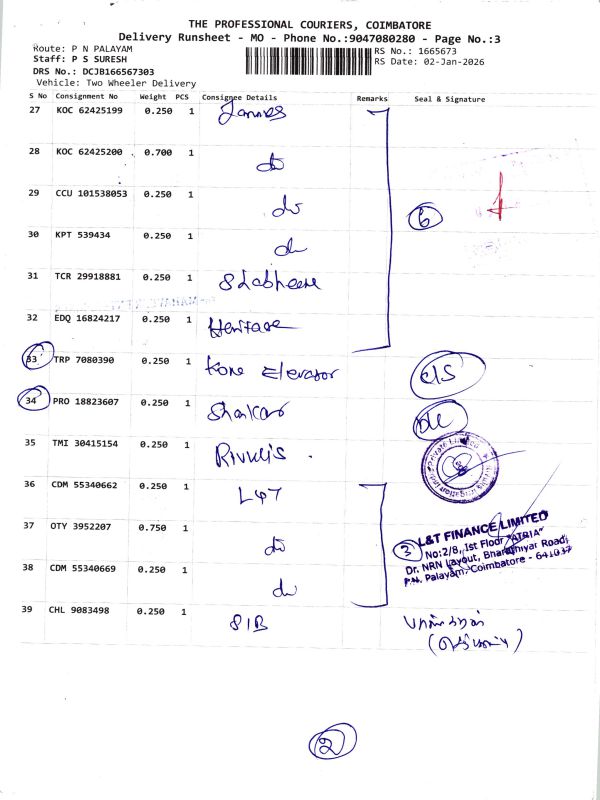 THE PROFESSIONAL COURIERS, COIMBATORE
Delivery Runsheet - MO - Phone No.:9047080280 - Page No.:3
Route: P N PALAYAM
RS No.: 1665673
Staff: P S SURESH
RS Date: 02-Jan-2026
DRS No.: DCJB166567303
Vehicle: Two Wheeler Delivery
S No Consignment No Weight PCS Consignee Details Remarks Seal & Signature
27 KOC 62425199 0.250 1
28 KOC 62425200 0.700 1 do
29 CCU 101538053 0.250 1 do 6
30 KPT 539434 0.250 1 do
31 TCR 29918881 0.250 1
32 EDQ 16824217 0.250 1 Heritage
33 TRP 7080390 0.250 1 Kone Elevator
34 PRO 18823607 0.250 1 Shankar
35 TMI 30415154 0.250 1 Rivulis
36 CDM 55340662 0.250 1 L&T
37 OTY 3952207 0.750 1 do
3 L&T FINANCE LIMITED
No:2/8, 1st Floor "ATRIA"
Dr. NRN Layout, Bharathiyar Road,
P.N. Palayam, Coimbatore - 641037
38 CDM 55340669 0.250 1 do
39 CHL 9083498 0.250 1 SIB
2